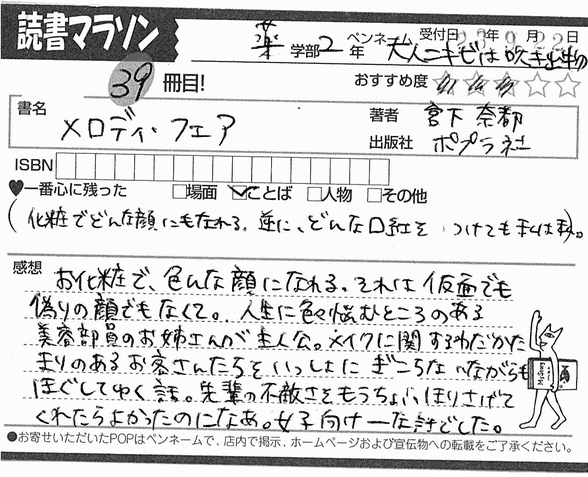 読書マラソン
薬 学部 2 年 ペンネーム 大人ニキビは吹き出物
受付日 23年9月22日
39 冊目!
おすすめ度 ★★★☆☆
書名 メロディ・フェア
著者 宮下 奈都
出版社 ポプラ社
ISBN
♥一番心に残った □場面 ☑ことば □人物 □その他
(化粧でどんな顔にもなれる。逆に、どんな口紅をつけても私は私。)
感想 お化粧で、色んな顔になれる。それは仮面でも
偽りの顔でもなくて。人生に色々悩むところのある
美容部員のお姉さんが主人公。メイクに関するわだかた
まりのあるお客さんたちをいっしょにぎこちないながらも
ほぐしてゆく話。先輩の不敵さをもうちょいほりさげて
くれたらよかったのになあ。女子向けーな話でした。
●お寄せいただいたPOPはペンネームで、店内で掲示、ホームページおよび宣伝物への転載をご了承ください。